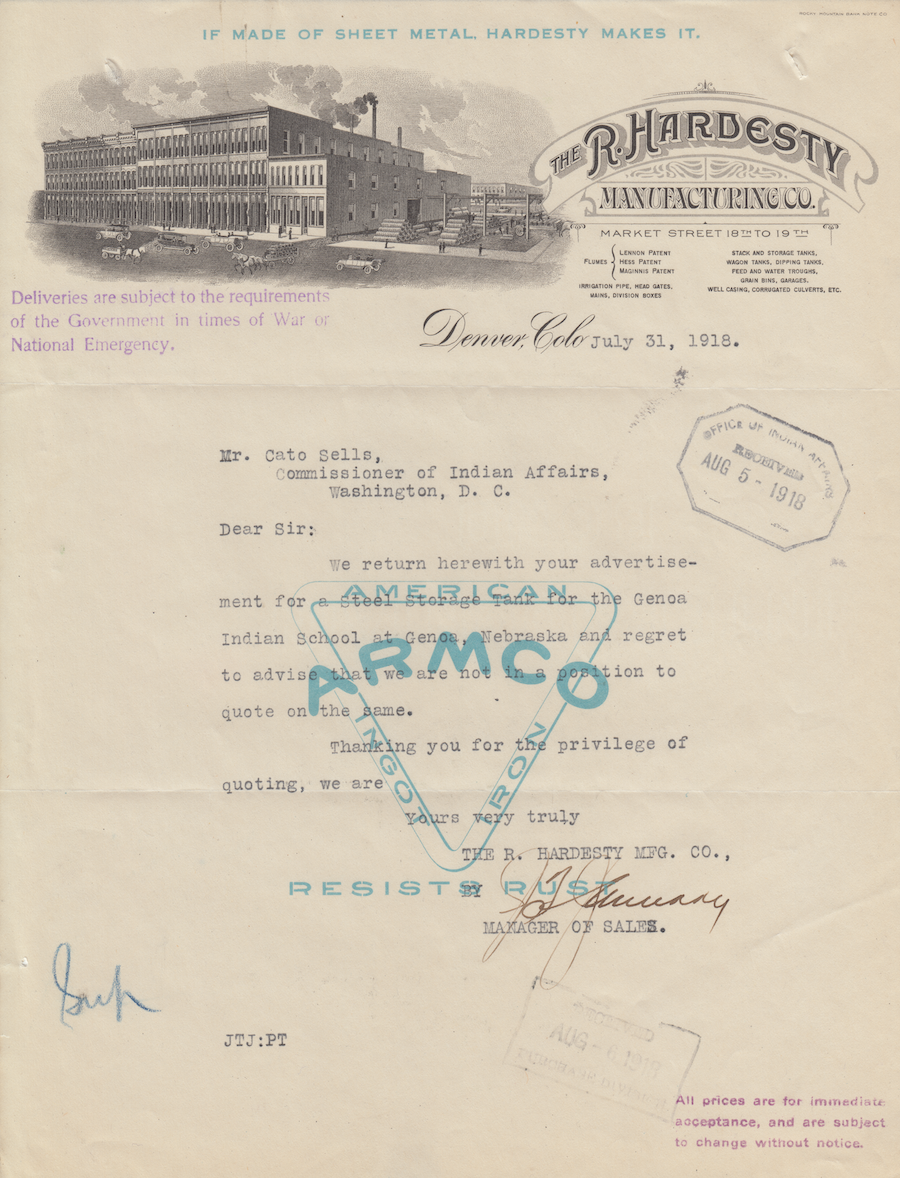 ROCKY MOUNTAIN BANK NOTE CO
IF MADE OF SHEET METAL, HARDESTY MAKES IT.
THE R. HARDESTY
MANUFACTURING CO.
MARKET STREET 18TH TO 19TH
FLUMES { LENNON PATENT
HESS PATENT
MAGINNIS PATENT
IRRIGATION PIPE, HEAD GATES,
MAINS, DIVISION BOXES
STACK AND STORAGE TANKS,
WAGON TANKS, DIPPING TANKS,
FEED AND WATER TROUGHS,
GRAIN BINS, GARAGES,
WELL CASING, CORRUGATED CULVERTS, ETC.
Deliveries are subject to the requirements
of the Government in times of War or
National Emergency.
Denver, Colo July 31, 1918.
OFFICE OF INDIAN AFFAIRS
RECEIVED
AUG 5 - 1918
Mr. Cato Sells,
Commissioner of Indian Affairs,
Washington, D. C.
Dear Sir:
We return herewith your advertise-
ment for a Steel Storage Tank for the Genoa
Indian School at Genoa, Nebraska and regret
to advise that we are not in a position to
quote on the same.
Thanking you for the privilege of
quoting, we are
Yours very truly
THE R. HARDESTY MFG. CO.,
BY
MANAGER OF SALES.
AMERICAN
ARMCO
INGOT IRON
RESISTS RUST
JTJ:PT
AUG - 6 1918
All prices are for immediate
acceptance, and are subject
to change without notice.